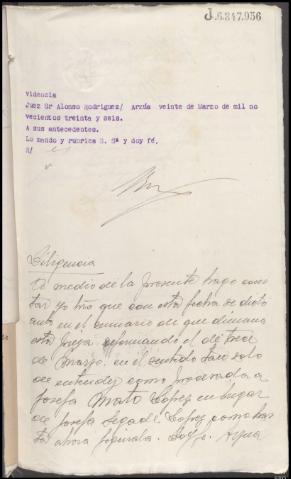 J.6.847.956
videncia
Juez Sr Alonso Rodriguez/ Arzúa veinte de Marzo de mil no
vecientos treinta y seis.
A sus antecedentes.
Lo mando y rubrica S. Sª y doy fé.
R/
Diligencia
Por medio de la presente hago cons
tar yo Srio que con esta fecha se dictó
auto en el sumario de que dimana
esta pieza reformando el de trece
de Marzo en el sentido tan solo
de entender como procesada a
Josefa Mato Lopez en lugar
de Josefa Segade Lopez como has
ta ahora figuraba. Doy fe. Arzua